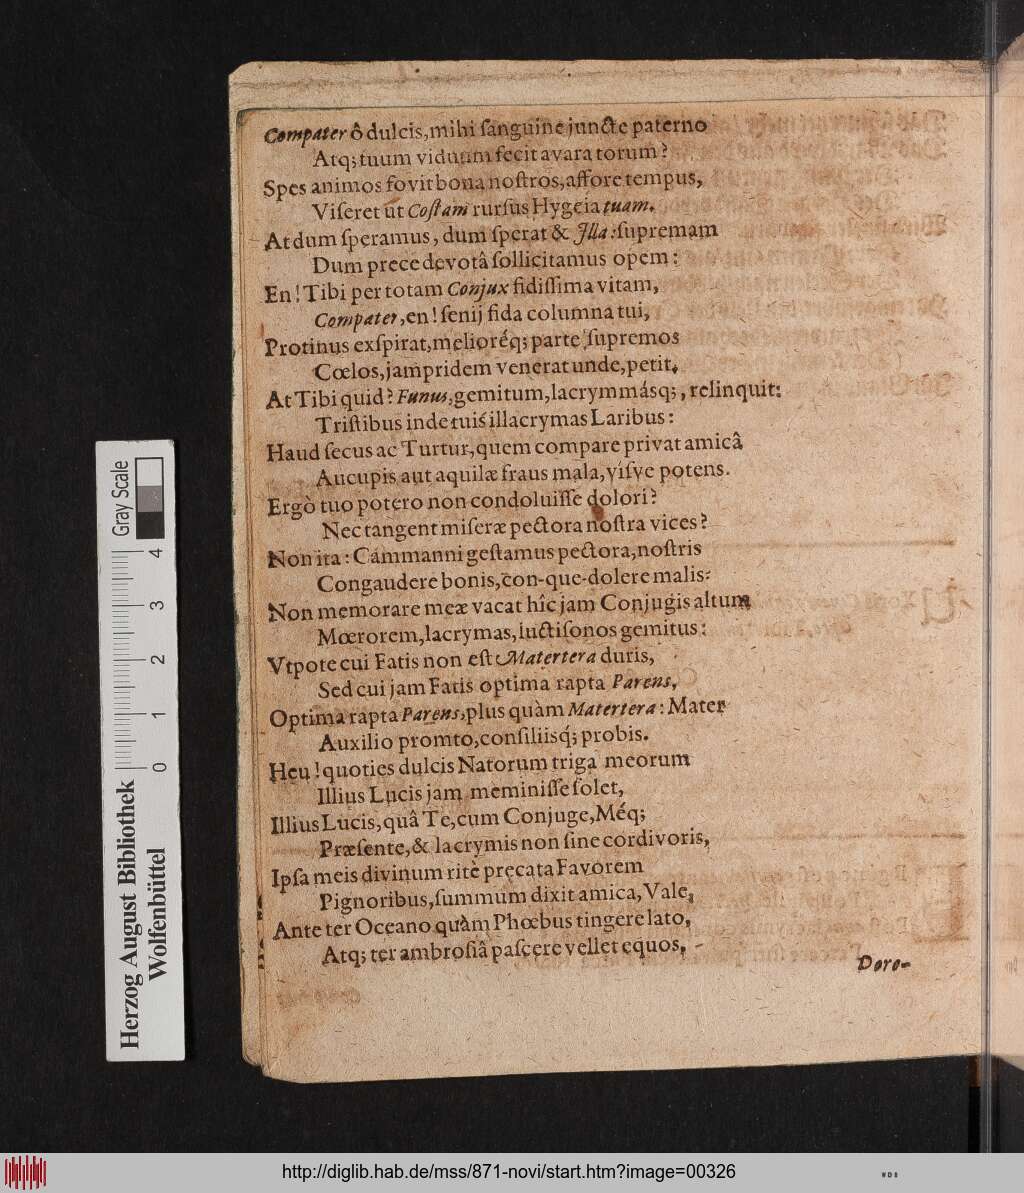 Compater ô dulcis, mihi ſanguine juncte paterno
Atq; tuum viduum fecit avara torum?
Spes animos fovit bona noſtros, affore tempus,
Viſeret ut Coſtam rurſus Hygeia tuam.
At dum ſperamus, dum ſperat & Illa: ſupremam
Dum prece devotâ ſollicitamus opem:
En! Tibi per totam Conjux fidiſſima vitam,
Compater, en! ſenij fida columna tui,
Protinus exſpirat, melioréq; parte ſupremos
Cœlos, jampridem venerat unde, petit.
At Tibi quid? Funus, gemitum, lacrymmásq;, relinquit:
Triſtibus inde tuis illacrymas Laribus:
Haud ſecus ac Turtur, quem compare privat amicâ
Aucupis aut aquilæ fraus mala, víſve potens.
Ergò tuo potero non condoluiſſe dolori?
Nec tangent miſeræ pectora noſtra vices?
Non ita: Cámmanni geſtamus pectora, noſtris
Congaudere bonis, con-que-dolere malis:
Non memorare meæ vacat hîc jam Conjugis altum
Mœrorem, lacrymas, luctiſonos gemitus:
Vtpote cui Fatis non eſt Matertera duris,
Sed cui jam Fatis optima rapta Parens,
Optima rapta Parens, plus quàm Matertera: Mater
Auxilio promto, conſiliisq́; probis.
Heu! quoties dulcis Natorum triga meorum
Illius Lucis jam meminiſſe ſolet,
Illius Lucis, quâ Te, cum Conjuge, Méq;
Præſente, & lacrymis non ſine cordivoris,
Ipſa meis divinum ritè precata Favorem
Pignoribus, ſummum dixit amica, Vale,
Ante ter Oceano quàm Phœbus tingere lato,
Atq; ter ambroſiâ paſcere vellet equos,
Doro-
Herzog August Bibliothek
Wolfenbüttel
0 1 2 3 4
Gray Scale
http://diglib.hab.de/mss/871-novi/start.htm?image=00326